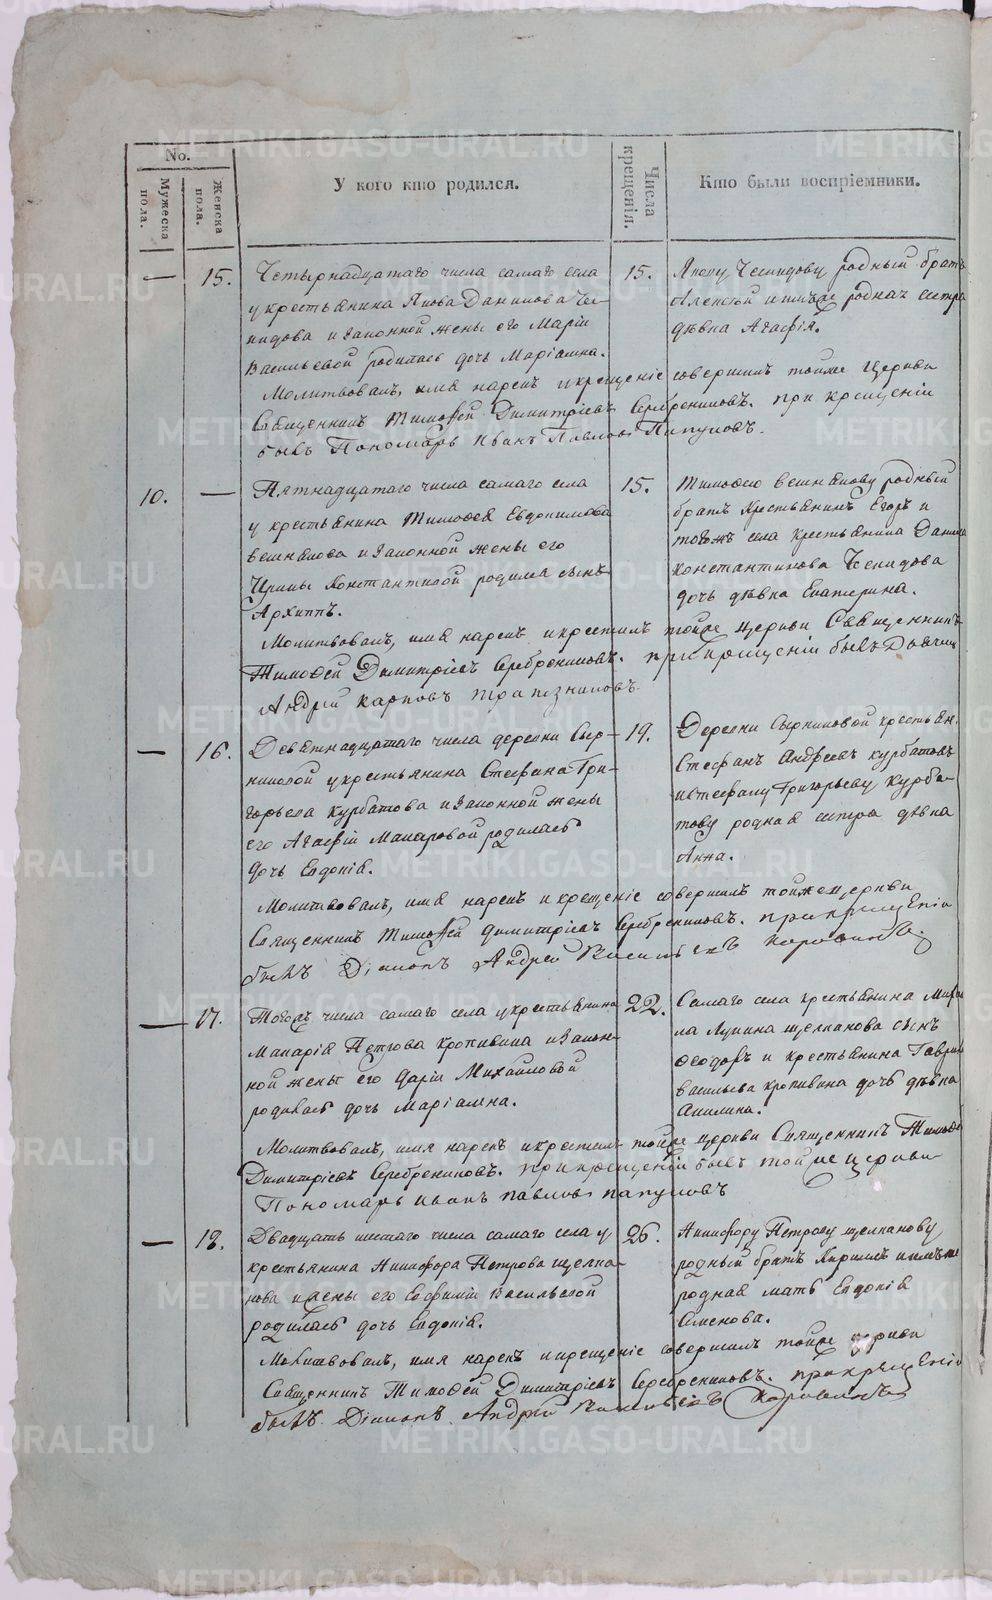 No.
Мужеска пола.
Женска пола.
У кого кто родился.
Числа крещенія.
Кто были воспріемники.
— 15. Четырнадцатаго числа самаго села
у крестьянина Якова Данилова Че-
видова и законной жены его Маріи
Васильевой родилась дочь Маріамна.
15. Якову Чевидову родный братъ
Алексѣй и родная сестра
дѣвка Агафія.
Молитвовалъ, имя нарекъ и крещеніе совершилъ тойже Церкви
Священникъ Тимоѳей Димитріевъ Серебрениковъ. при крещеніи
былъ Пономарь Иванъ Павловъ Папуловъ.
10. — Пятнадцатаго числа самаго села
у крестьянина Тимоѳея Евдокимова
вешнякова и законной жены его
Ирины Константиновой родился сынъ
Архиппъ.
15. Тимоѳею вешнякову родный
братъ крестьянинъ Егоръ и
тогожъ села крестьянина Данила
константинова Чевидова
дочь дѣвка Екатерина.
Молитвовалъ, имя нарекъ и крестилъ тойже церкви Священникъ
Тимоѳей Димитріевъ Серебрениковъ. при крещеніи былъ
Андрій карповъ трапезниковъ.
— 16. Девятнадцатаго числа деревни Сыр-
никовой у крестьянина Стефана Гри-
горьева курбатова и законной жены
его Агафіи Макаровой родилась
дочь Евдокія.
19. Деревни Сырниковой крестьян.
Стефанъ Андреевъ курбатовъ
и стефану Григорьеву курба-
тову родная сестра дѣвка
Анна.
Молитвовалъ, имя нарекъ и крещеніе совершилъ тойже церкви
Священникъ Тимоѳей димитріевъ Серебрениковъ. при крещеніи
былъ Діаконъ Андрей
— 17. Тогожъ числа самаго села у крестьянина
Макарія Петрова кропивина и закон-
ной жены его Даріи Михаиловой
родилась дочь Маріамна.
22. Самаго села крестьянина Михаи
ла Лукина щелканова сынъ
Ѳеодоръ и крестьянина Гаврил
васильева кропивина дочь дѣвка
Акилина.
Молитвовалъ, имя нарекъ и крестилъ тойже церкви Священникъ Тимоѳей
Димитріевъ Серебрениковъ. при крещеніи былъ тойже церкви
Пономарь иванъ павловъ папуловъ
— 18. Двадцать шестаго числа самаго села у
крестьянина Никифора Петрова щелка-
нова и жены его Евфиміи Васильевой
родилась дочь Евдокія.
26. Никифору Петрову щелканову
родный братъ Кириллъ и имъже
родная мать Евдокія
Семенова.
Молитвовалъ, имя нарекъ и крещеніе совершилъ тойже церкви
Священникъ Тимоѳей Димитріевъ Серебрениковъ. при крещеніи
былъ Діаконъ Андрей
METRIKI.GASO-URAL.RU